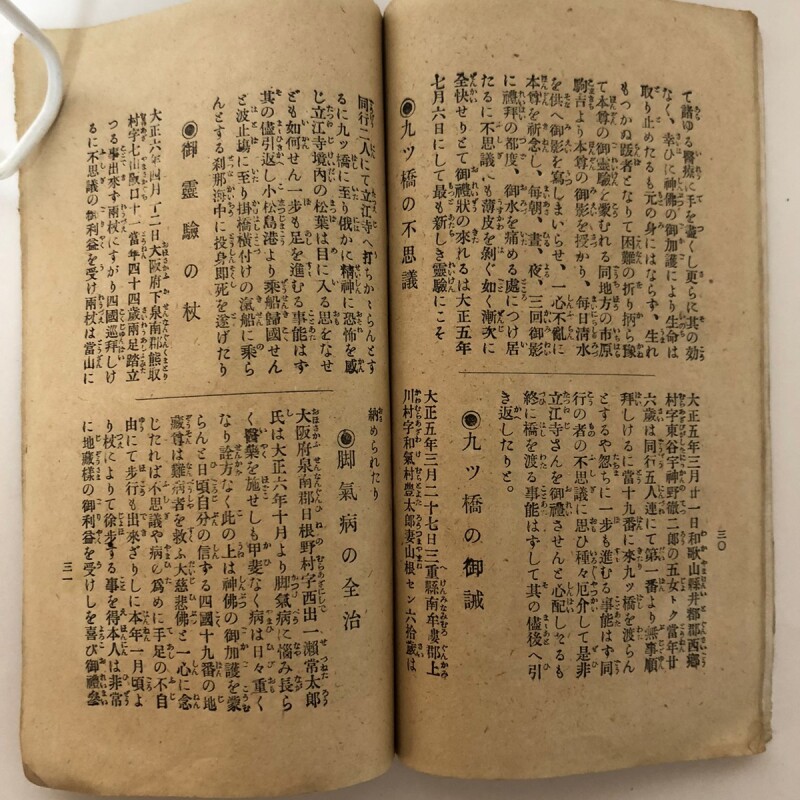 て諸ゆる醫療に手を盡くし更らに其の効
なく、幸ひに神佛の御加護により生命は
取り止めたるも元の身にはならず、生れ
もつかぬ躄者となりて困難の折り柄ら豫
て本尊の御靈驗を蒙むれる同地方の市原
駒吉より本尊の御影を授かり、毎日淸水
を供へ御影を寫しまいらせ、一心不亂に
本尊を祈念し、毎朝、晝、夜、三回御影
に禮拜の都度、御水を痛める處につけ居
たるに不思議にも薄皮を剝ぐ如く漸次に
全快せりとて御禮狀の來れるは大正五年
七月六日にして最も新しき靈驗にこそ
◉九ツ橋の不思議
大正五年三月廿一日和歌山縣井都郡西鄉
村字東谷字神野徹二郎の五女トク當年廿
六歲は同行五人連にて第一番より無事順
拜しけるに當十九番に來九ツ橋を渡らん
とするや忽ちに一步も進むる事能はず同
行の者の不思議に思ひ種々厄介して是非
立江寺さんを御禮させんと心配しせるも
終に橋を渡る事能はずして其の儘後へ引
き返したりと。
◉九ツ橋の御誡
大正五年三月二十七日三重縣南牟婁郡上
川村字和氣村豐太郎妻山根セン六拾歲は
三〇
同行二人にて立江寺へ打ちかゝらんとす
るに九ツ橋に至り俄かに精神に恐怖を感
じ立江寺境内の松葉は目に入る思をなせ
ども如何せん一步も足を進むる事能はず
其の儘引返し小松島港より乘船歸國せん
と波止塲に至り掛橋橫付けの滊船に乘ら
んとする刹那海中に投身卽死を遂げたり
◉御靈驗の杖
大正六年四月了二日大阪府下泉南郡熊取
村字七山阪口十一當年四十四歲兩足踏立
つる事出來ず兩杖にすがり四國巡拜しけ
るに不思議の御利益を受け兩杖は當山に
納められたり
◉脚氣病の全治
大阪府泉南郡日根野村字西出一瀨常太郎
氏は大正六年十月より脚氣病に惱み長ら
く醫藥を施せしも甲斐なく病は日々重く
なり詮方なく此の上は神佛の御加護を蒙
らんと日頃自分の信する四國十九番の地
藏尊は難病者を救ふ大慈悲佛と一心に念
じたれば不思議や病の爲めに手足の不自
由にて步行も出來ざりしに本年一月頃よ
り杖によりて徐步する事を得本人は非常
に地藏樣の御利益を受けしを喜び御禮參
三一